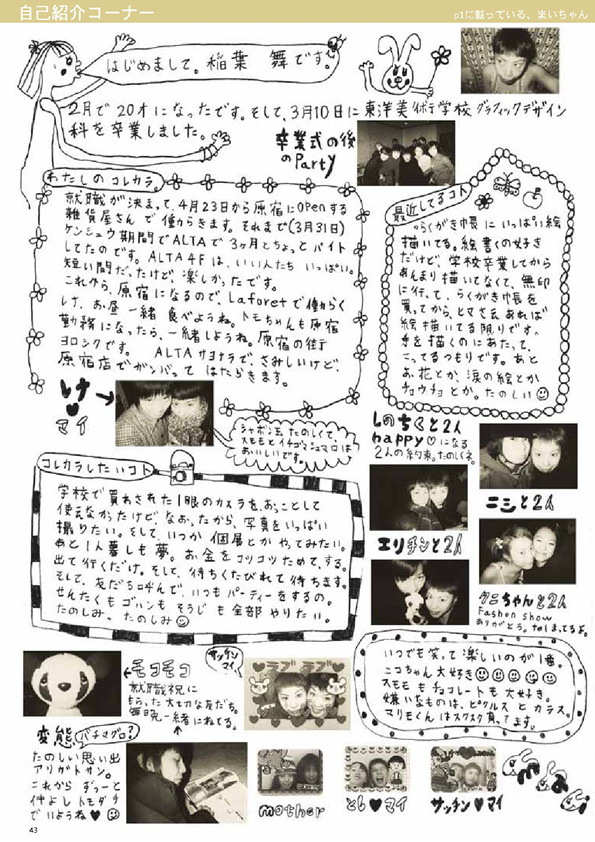 自己紹介コーナー
p1に載っている、まいちゃん
はじめまして。稲葉 舞です。
2月で20才になったです。そして、3月10日に東洋美術学校グラフィックデザイン
科を卒業しました。
卒業式の後
のParty
わたしのコレカラ。
就職が決まって、4月23日から原宿にOpenする
雑貨屋さんで働らきます。それまで(3月31日)
ケンシュウ期間でALTAで3ヶ月とちょっとバイト
してたのです。ALTA 4Fは、いい人たち いっぱい。
短い間だったけど、楽しかったです。
これから、原宿になるので、Laforetで働らく
しげ、お昼一緒食べようね。トモちゃんも原宿
勤務になったら、一緒しようね。原宿の街
ヨロシクです。 ALTAサヨナラで、さみしいけど、
原宿店でガンバって はたらきます。
最近してるコト
らくがき帳に いっぱい絵
描いてる。絵書くの好き
だけど、学校卒業してから
あんまり描いてなくて、無印
に行って、らくがき帳を
買ってから、ヒマさえあれば
絵描いてる限りです。
を描くのにあたって、
こってるつもりです。あと
お花とか、涙の絵とか
チョウチョとか。たのしい
しげ
♥
マイ
シャボン玉たのしくて、
スモモとイチゴマシュマロは
おいしいです。
しのちくと2人
happy♡になる
2人の約束。たのしくネ。
コレカラしたいコト
学校で買わされた1眼のカメラを、おっことして
使えなかったけど なおったから、写真をいっぱい
撮りたい。そして、いつか個展とかやってみたい。
あと1人暮しも夢。お金をコツコツためて、する。
出て行くだけ。そして、待ちくたびれて待ちます。
そして、友だち呼んで、いつもパーティーをするの。
せんたくも ゴハンも そうじ も全部 やりたい。
たのしみ。たのしみ
ニシと2人
エリチンと2人
クニちゃんと2人
Fashon show
ありがとう。tel まってるよ。
いつでも笑って楽しいのが1番。
ニコちゃん大好き
スモモもチョコレートも大好き。
嫌いなものは、ピクルスとカラス。
マリモくんはスクスク育ってます。
←モコモコ
就職祝に
もらった大切な友だち。
毎晩一緒にねてる。
サッチン
マイ
ラブ♥ラブ
変態(バチマグロ?)
たのしい思い出
アリガトサン。
これから ずぅーと
仲よし トモダチ
でいようね♥
mother
とし♥マイ
サッチン♥マイ
mai
43